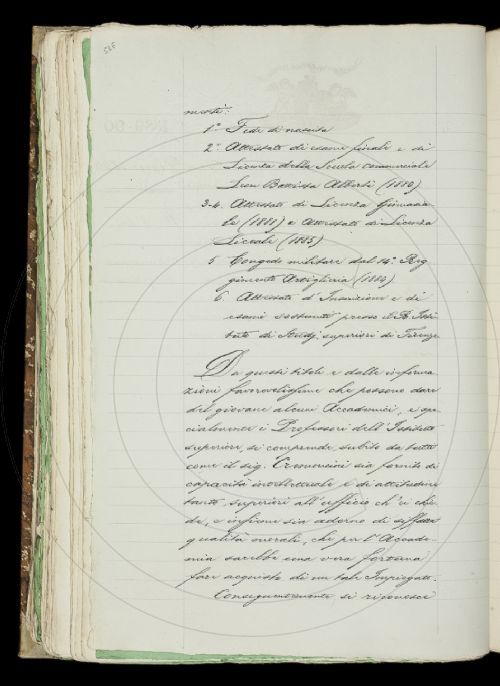 menti:
1.° Fede di nascita
2.° Attestato di esame finale e di
Licenza della Scuola Commerciale
Leon Battista Alberti (1880)
3-4. Attestato di Licenza Ginnasia-
le (1881) e Attestato di Licenza
Liceale (1885)
5 Congedo militare dal 14.° Reg
gimento Artiglieria (1889)
6 Attestato d'Inscrizione e di
esami sostenuti presso il R. Isti
tuto di Studj superiori di Firenze
Da questi titoli e dalle informa
zioni favorevolissime che possono dare
del giovane alcuni Accademici, e spe
cialmente i Professori dell'Istituto
superiore, si comprende subito da tutti
come il sig. sia fornito di
capacità intellettuale e di attitudini
tanto superiori all'ufficio ch'ei chie
de, e infine sia adorno di siffatte
qualità morali, che per l'Accade-
mia sarebbe una vera fortuna
fare acquisto di un tale Impiegato.
Conseguentemente si riconosce